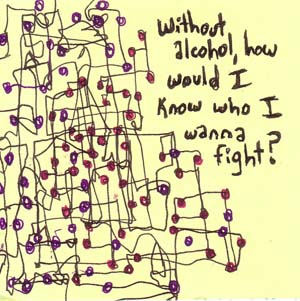 Without
alcohol, how
would I
know who I
wanna
fight?